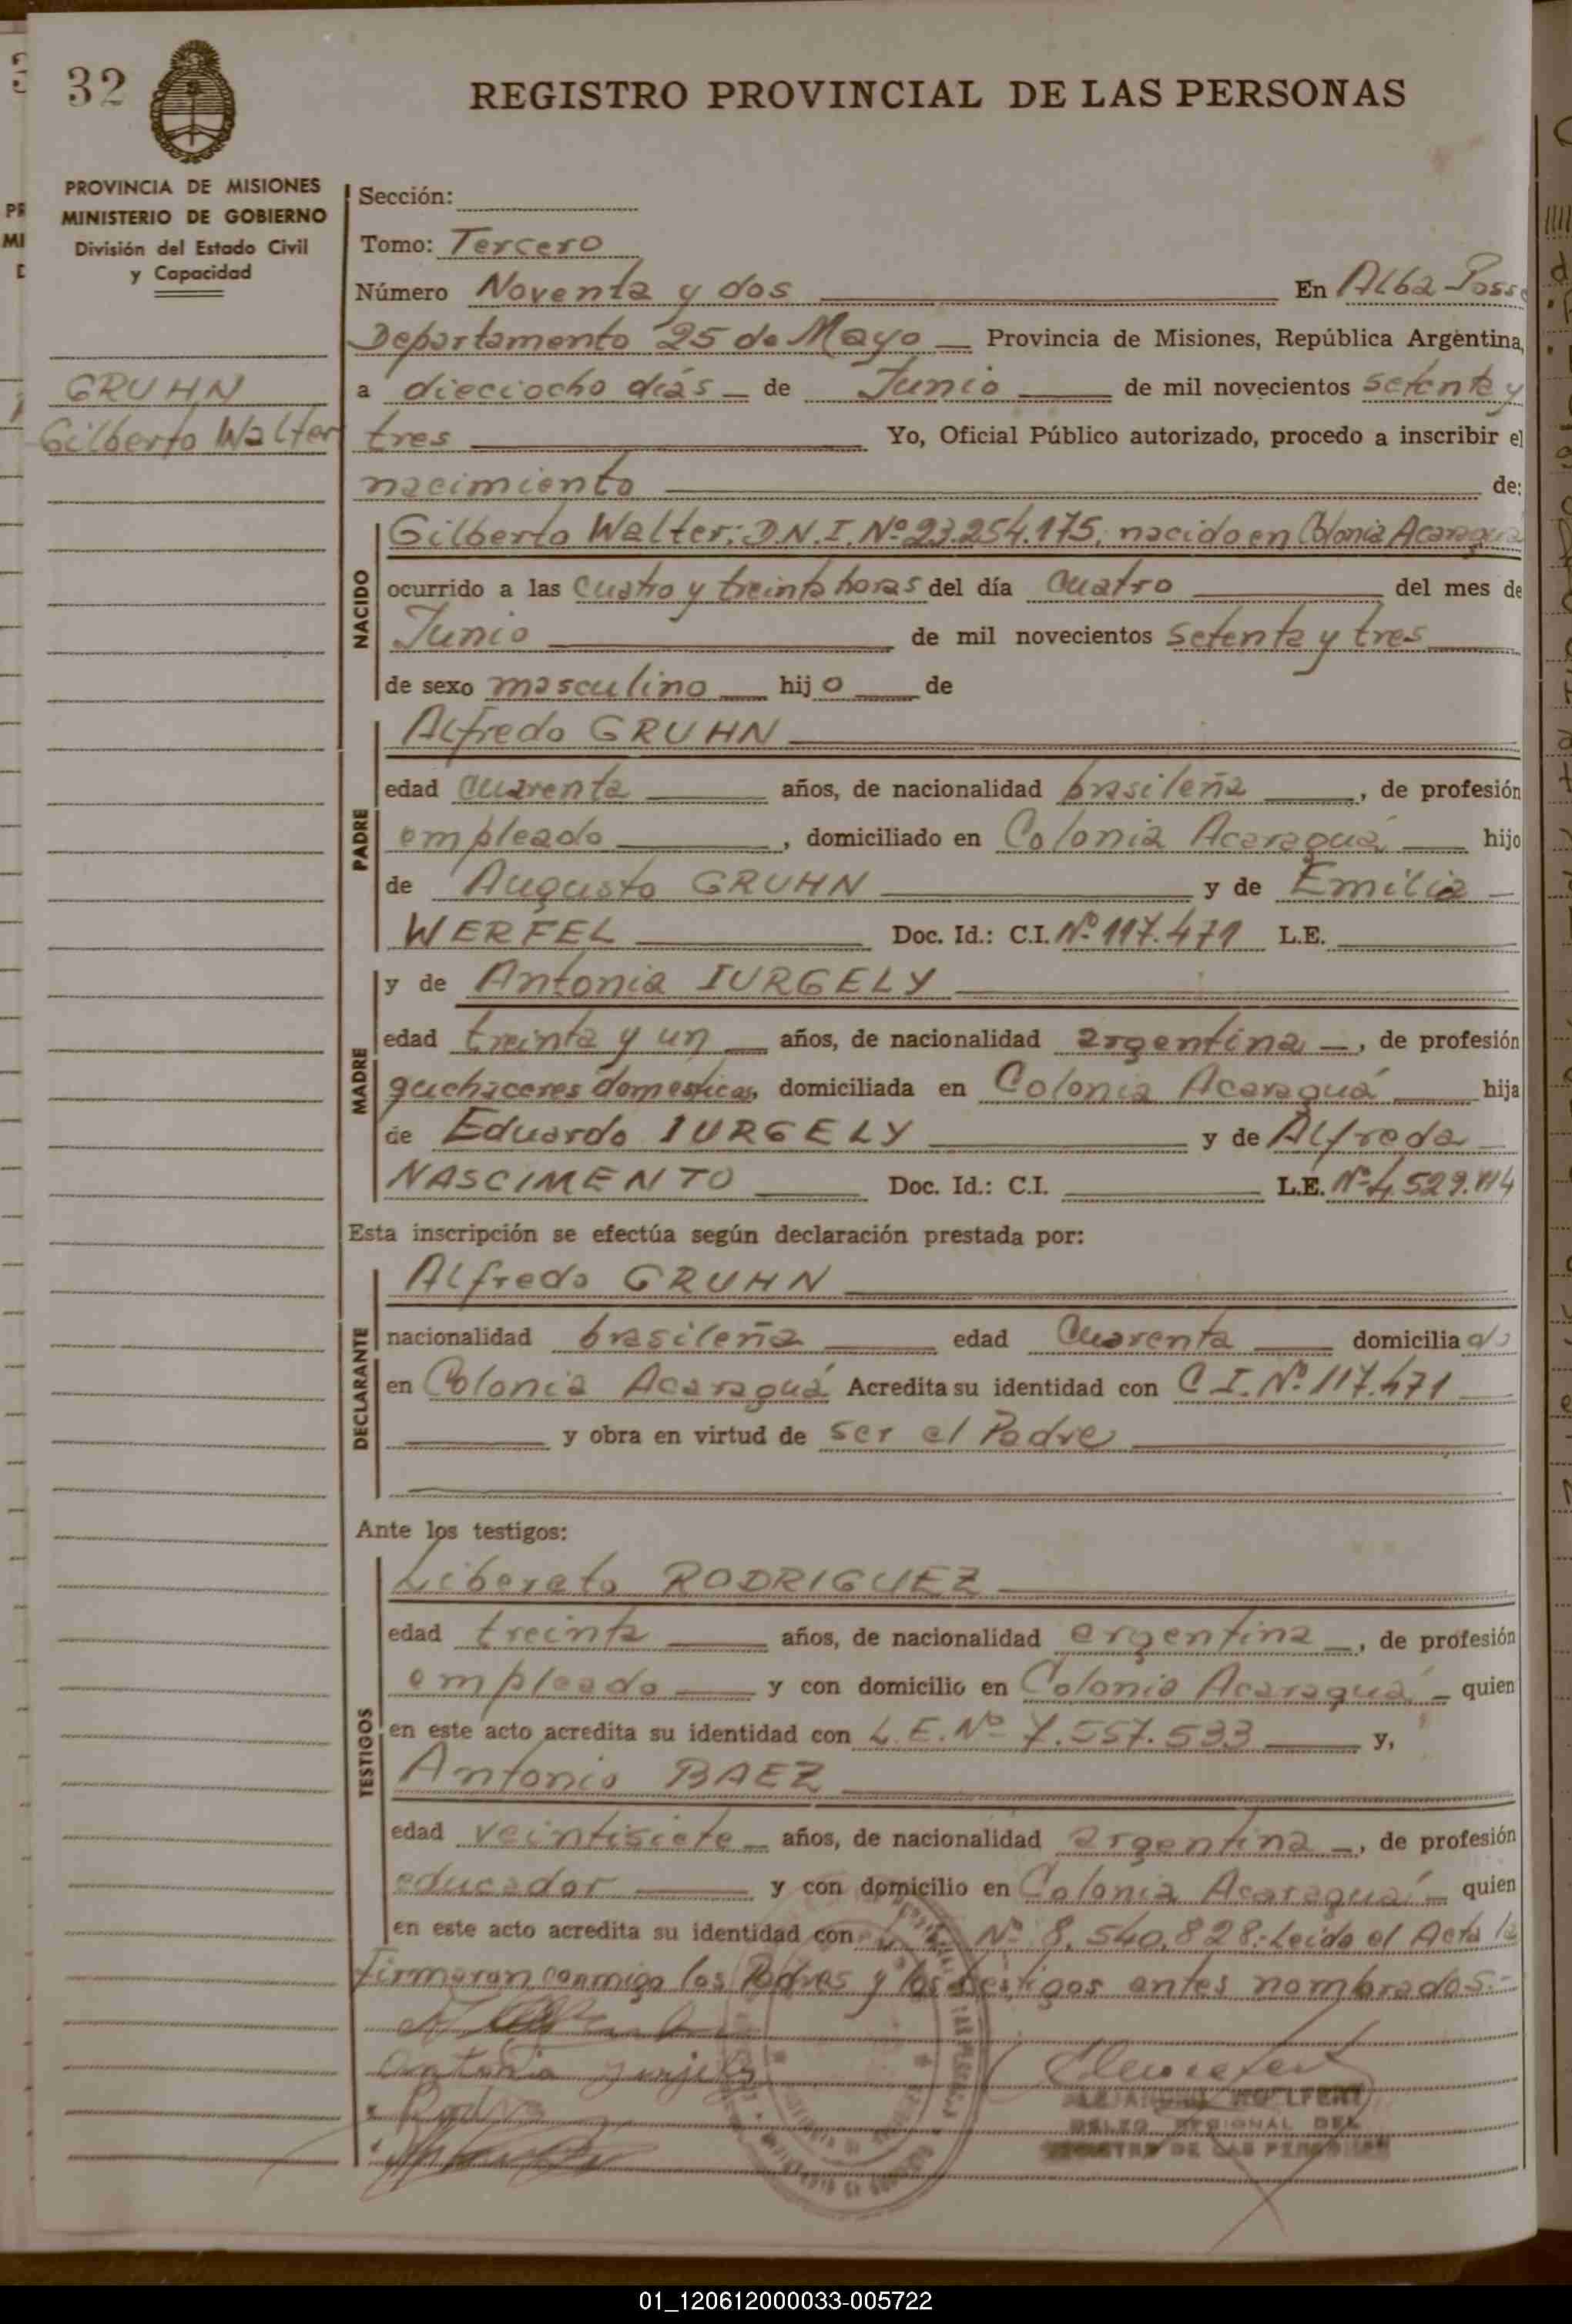 32
REGISTRO PROVINCIAL DE LAS PERSONAS
PROVINCIA DE MISIONES
MINISTERIO DE GOBIERNO
División del Estado Civil
y Capacidad
GRUHN
Gilberto Walter
Sección:
Tomo: Tercero
Número Noventa y dos En Alba Posse
Departamento 25 de Mayo Provincia de Misiones, República Argentina,
a dieciocho días de Junio de mil novecientos setenta y
tres Yo, Oficial Público autorizado, procedo a inscribir el
nacimiento de:
NACIDO
Gilberto Walter; D.N.I. Nº 23.254.175; nacido en Colonia Acaragua
ocurrido a las cuatro y treinta horas del día cuatro del mes de
Junio de mil novecientos setenta y tres
de sexo masculino hijo de
PADRE
Alfredo GRUHN
edad cuarenta años, de nacionalidad brasileña, de profesión
empleado, domiciliado en Colonia Acaraguá hijo
de Augusto GRUHN y de Emilia
WERFEL Doc. Id.: C.I. Nº 117.471 L.E.
MADRE
y de Antonia IURGELY
edad treinta y un años, de nacionalidad argentina, de profesión
quehaceres domesticos, domiciliada en Colonia Acaraguá hija
de Eduardo IURGELY y de Alfreda
NASCIMENTO Doc. Id.: C.I. L.E. Nº 4.529.
Esta inscripción se efectúa según declaración prestada por:
DECLARANTE
Alfredo GRUHN
nacionalidad brasileña edad cuarenta domiciliado
en Colonia Acaraguá Acredita su identidad con C.I. Nº 117.471
y obra en virtud de ser el Padre
Ante los testigos:
TESTIGOS
Liberato RODRIGUEZ
edad treinta años, de nacionalidad argentina, de profesión
empleado y con domicilio en Colonia Acaraguá quien
en este acto acredita su identidad con L.E. Nº 7.557.533 y,
Antonio BAEZ
edad veintisiete años, de nacionalidad argentina, de profesión
educador y con domicilio en Colonia Acaraguá quien
en este acto acredita su identidad con Nº 8.540.828. Leida el Acta la
firmaron conmigo los Padres y los testigos antes nombrados.-
REGIONAL DEL
DE LAS PERSONAS
01_120612000033-005722